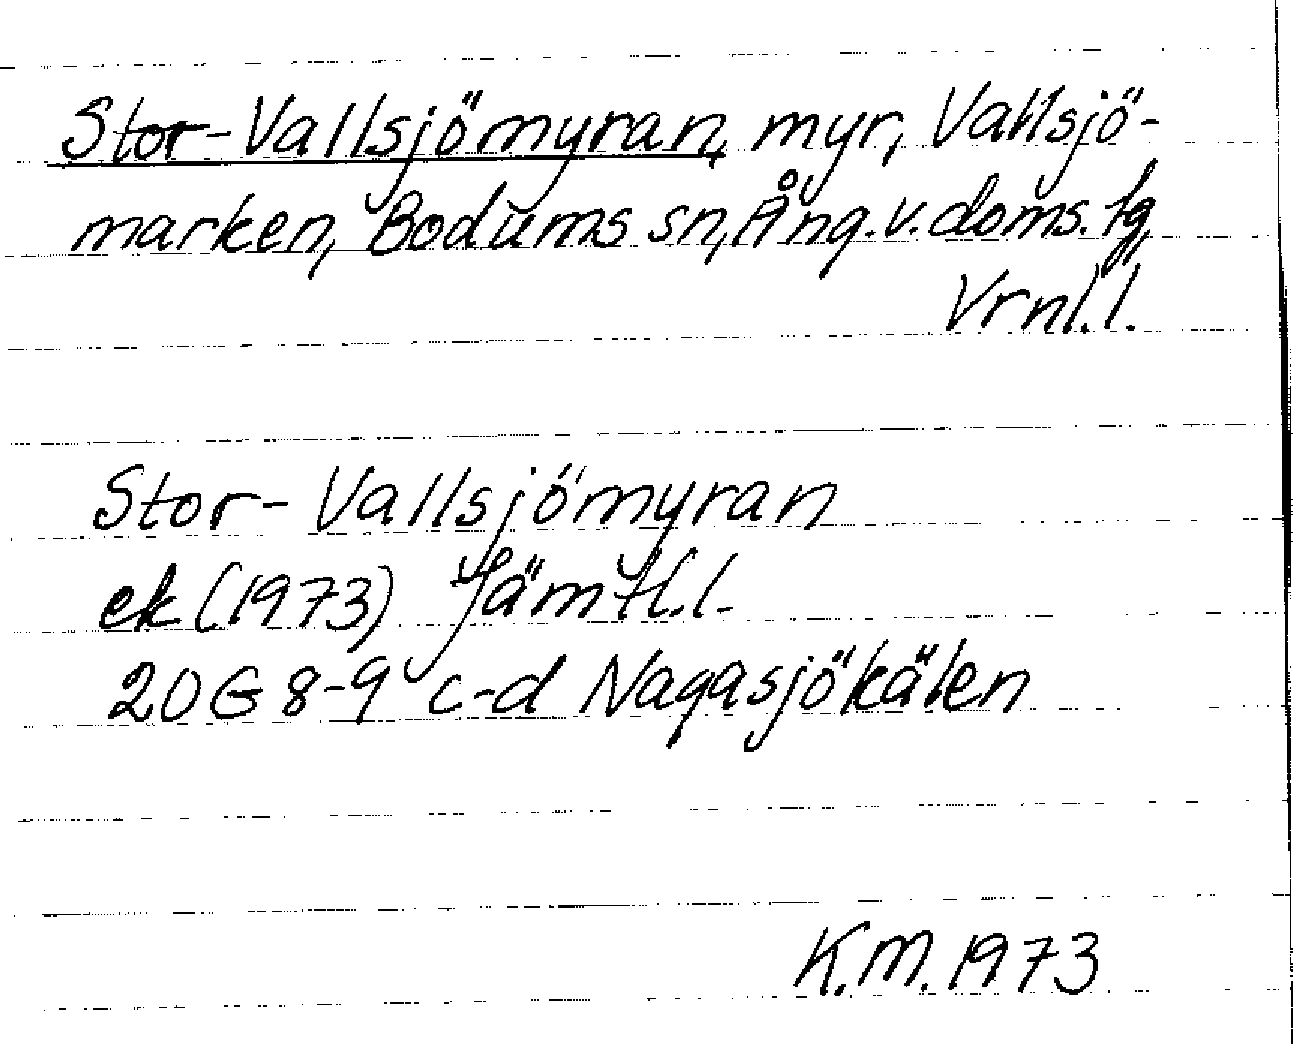 Stor-Vallsjömyran, myr, Vallsjö-
marken, Bodums sn, Ång. v. doms. tg,
Vrnl. l.
Stor-Vallsjömyran
ek (1973) Jämtl. l.
20G 8-9 c-d Nagasjökälen
K.M. 1973